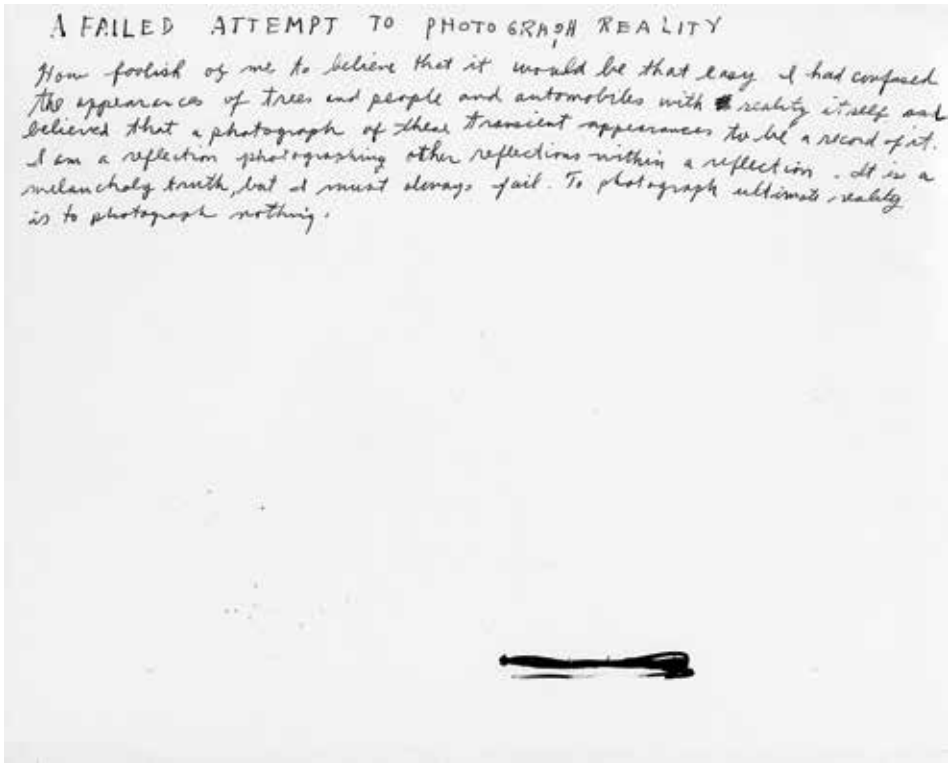 A FAILED ATTEMPT TO PHOTOGRAPH REALITY
How foolish of me to believe that it would be that easy I had confused
the appearances of trees and people and automobiles with reality itself and
believed that a photograph of these transient appearances to be a record of it.
I am a reflection photographing other reflections within a reflection. It is a
melancholy truth, but I must always fail. To photograph ultimate reality
is to photograph nothing.